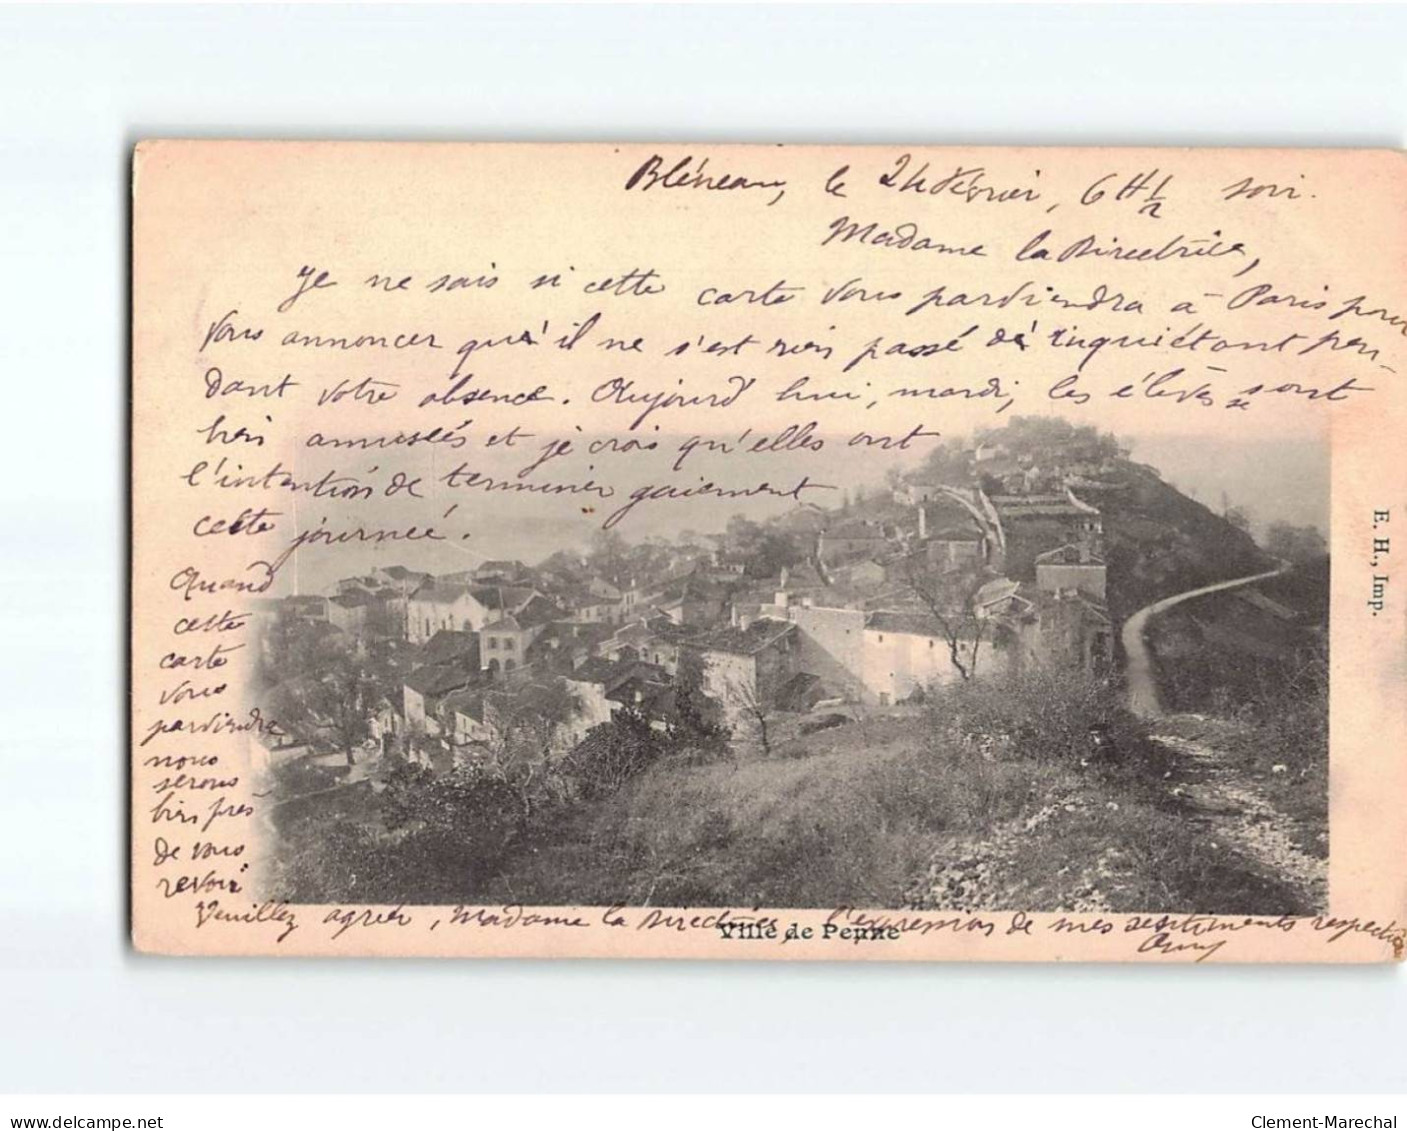 Bléneau, le 24 Février, 6 H 1/2 soir.
Madame la Directrice,
Je ne sais si cette carte vous parviendra à Paris pour
vous annoncer qu'il ne s'est rien passé d'inquiétant pen-
dant votre absence. Aujourd'hui, mardi, les élèves se sont
bien amusées et je crois qu'elles ont
l'intention de terminer gaiement
cette journée.
Quand
cette
carte
vous
parviendra
nous
serons
bien près
de vous
revoir
Veuillez agréer, Madame la Directrice, l'expression de mes sentiments respectueux
Ville de Penne
E. H., Imp.
www.delcampe.net
Clement-Marechal